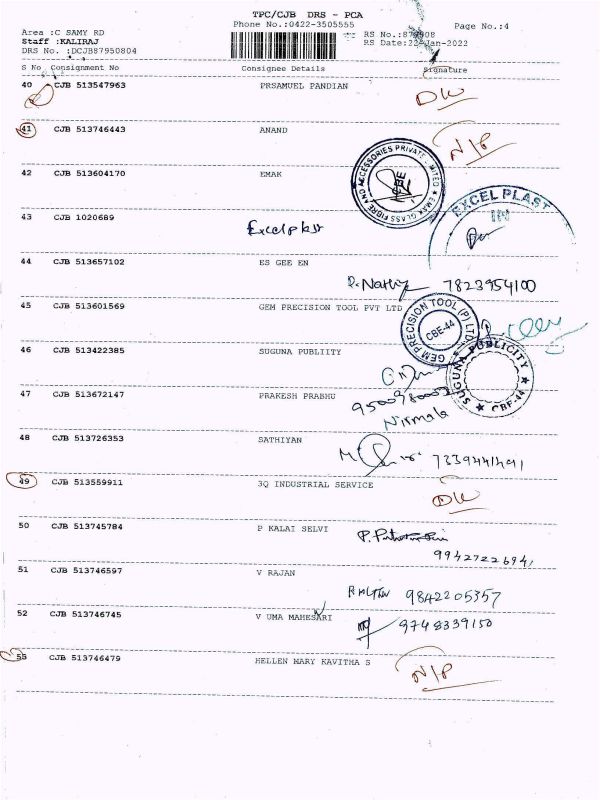 TPC/CJB DRS - PCA
Phone No.:0422-3505555
Page No.:4
Area :C SAMY RD
Staff :KALIRAJ
RS No.:87
DRS No. :DCJB87950804
RS Date:22-Jan-2022
S No Consignment No Consignee Details Signature
40 CJB 513547963 PRSAMUEL PANDIAN
DW
41 CJB 513746443 ANAND
N/P
42 CJB 513604170 EMAK
EMAK GLASS FIBRE AND ACCESSORIES PRIVATE LIMITED
CBE
43 CJB 1020689 Excel plast
EXCEL PLAST
IN
44 CJB 513657102 ES GEE EN
7823954100
45 CJB 513601569 GEM PRECISION TOOL PVT LTD
GEM PRECISION TOOL (P) LTD
CBE-44
46 CJB 513422385 SUGUNA PUBLIITY
SUGUNA PUBLICITY
CBE-44
47 CJB 513672147 PRAKESH PRABHU
Nirmala
48 CJB 513726353 SATHIYAN
49 CJB 513559911 3Q INDUSTRIAL SERVICE
DW
50 CJB 513745784 P KALAI SELVI
51 CJB 513746597 V RAJAN
9842205357
52 CJB 513746745 V UMA MAHESARI
9748339150
53 CJB 513746479 HELLEN MARY KAVITHA S
N/P